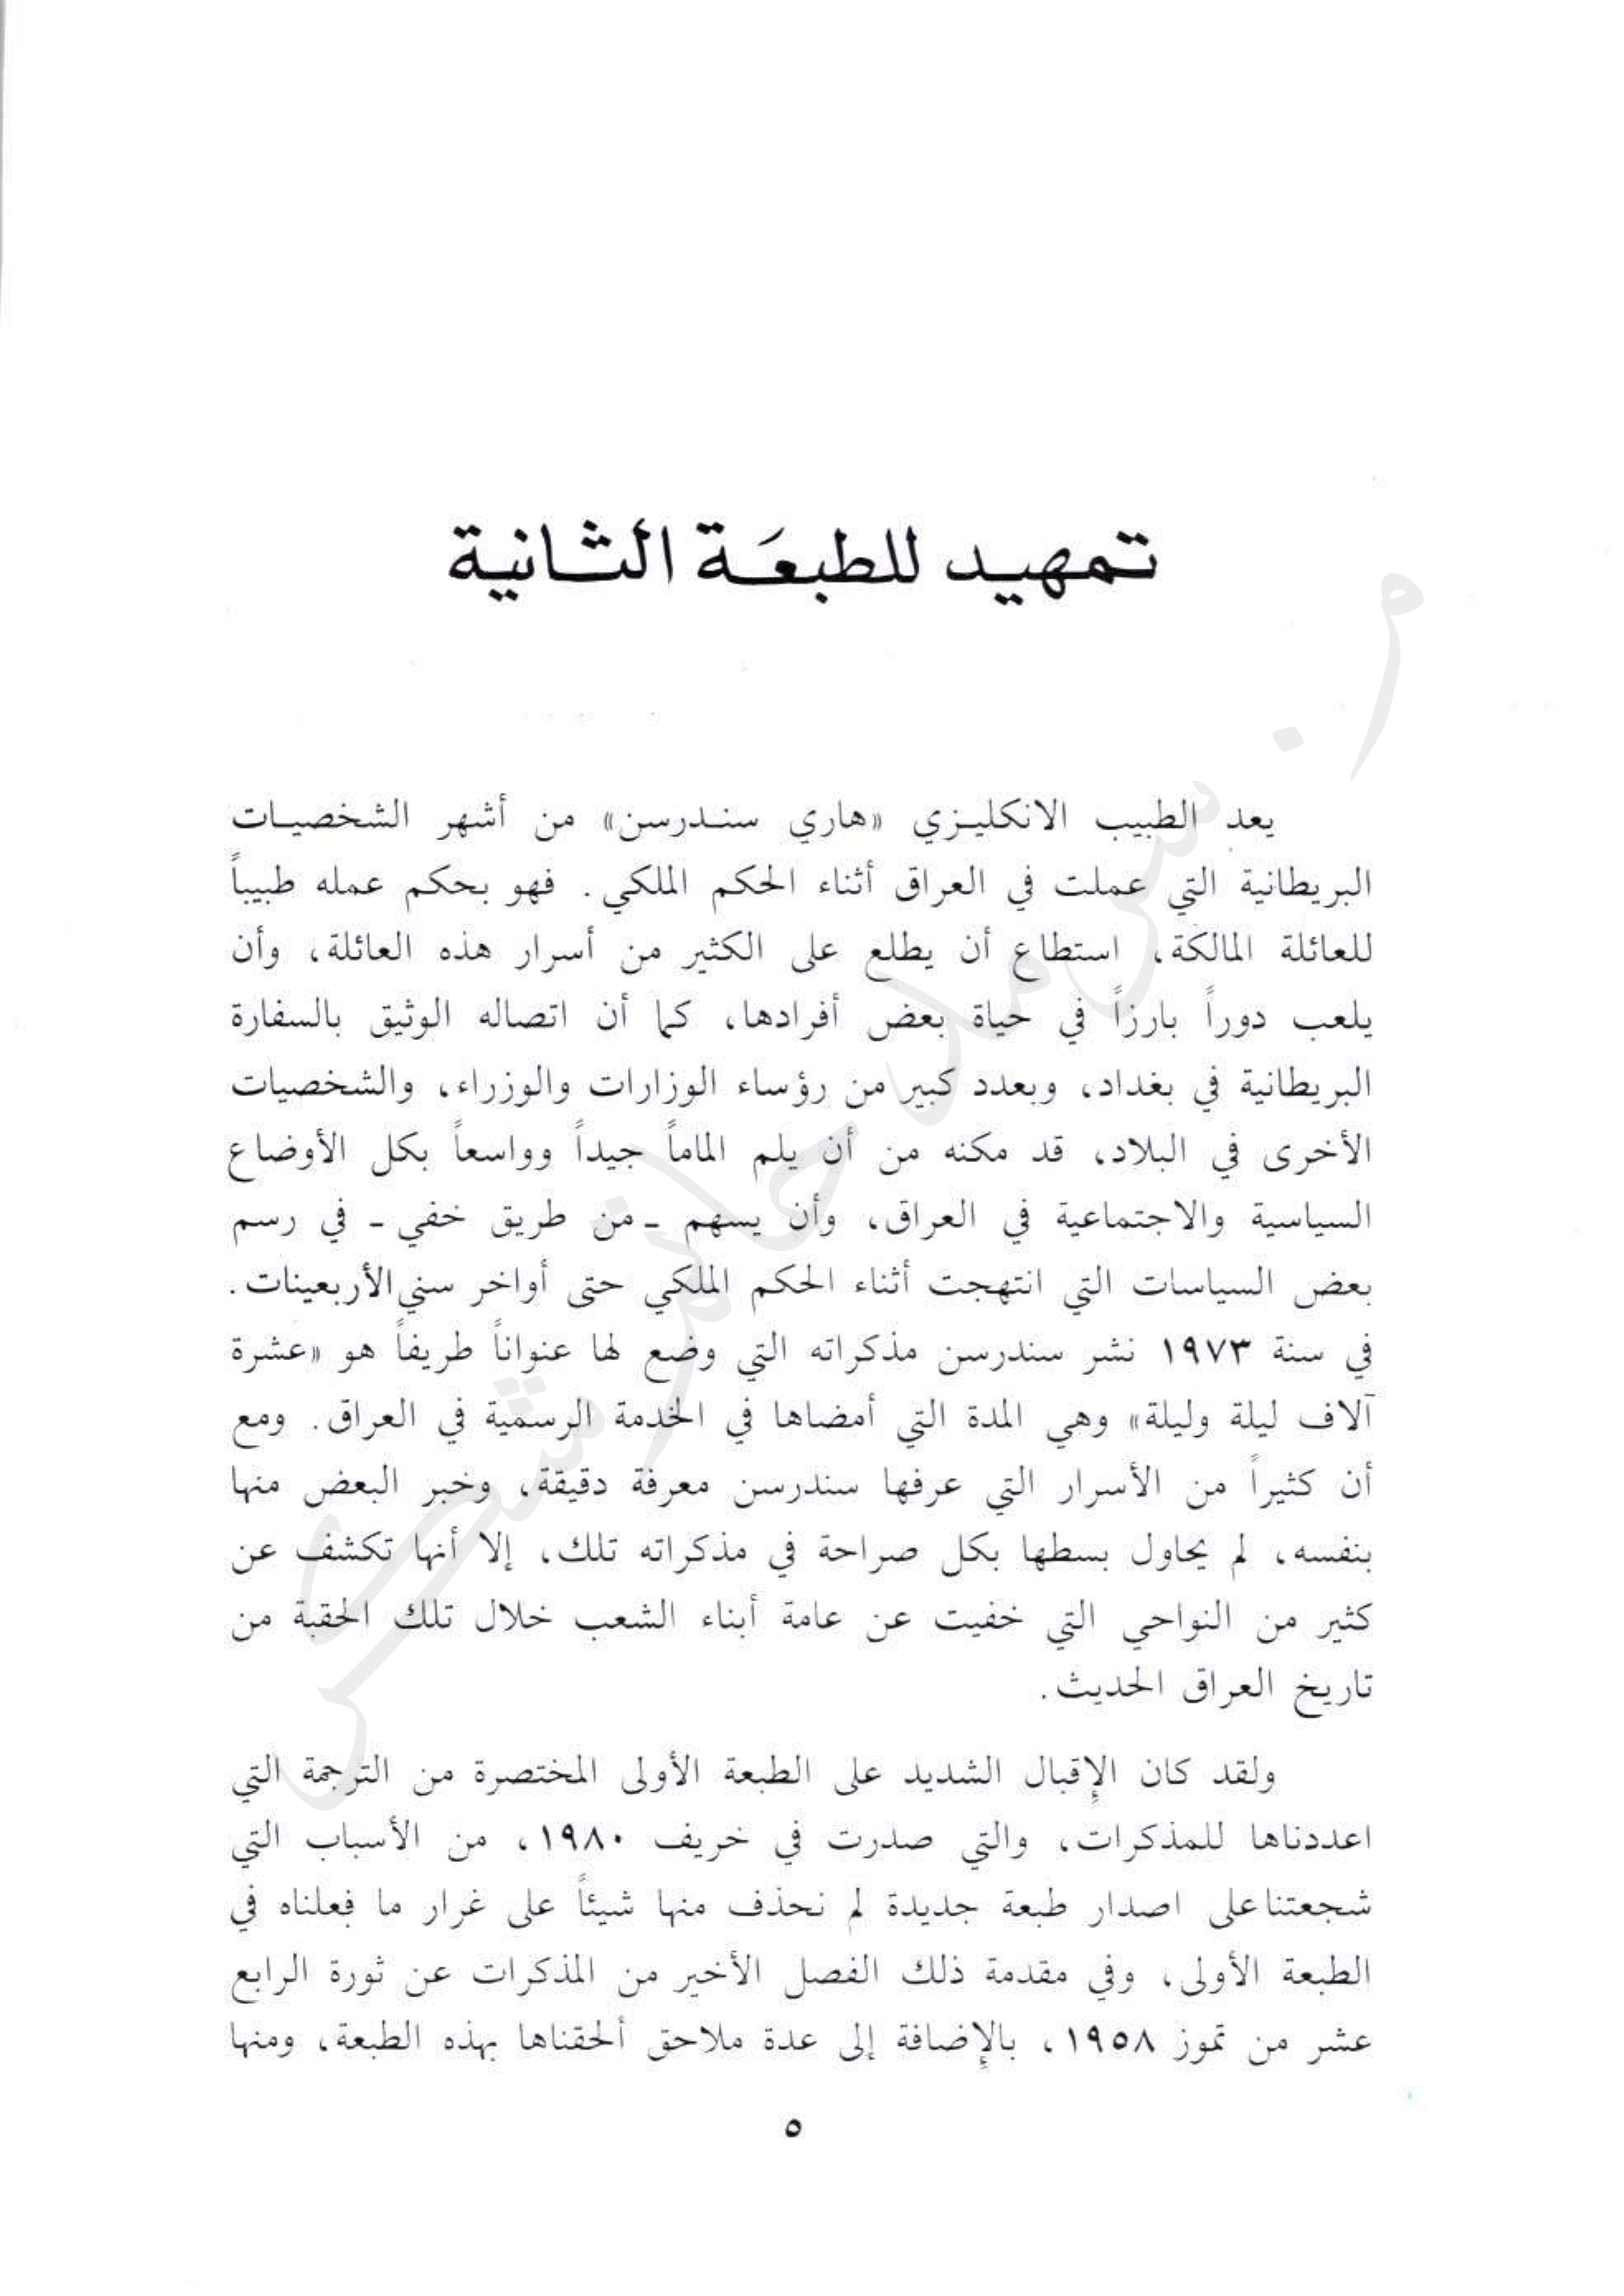 تمهيد للطبعَة الثانية
يعد الطبيب الانكليزي «هاري سندرسن» من أشهر الشخصيات
البريطانية التي عملت في العراق أثناء الحكم الملكي. فهو بحكم عمله طبيباً
للعائلة المالكة، استطاع أن يطلع على الكثير من أسرار هذه العائلة، وأن
يلعب دوراً بارزاً في حياة بعض أفرادها، كما أن اتصاله الوثيق بالسفارة
البريطانية في بغداد، وبعدد كبير من رؤساء الوزارات والوزراء، والشخصيات
الأخرى في البلاد، قد مكنه من أن يلم الماماً جيداً وواسعاً بكل الأوضاع
السياسية والاجتماعية في العراق، وأن يسهم ـ من طريق خفي ـ في رسم
بعض السياسات التي انتهجت أثناء الحكم الملكي حتى أواخر سني الأربعينات.
في سنة ١٩٧٣ نشر سندرسن مذكراته التي وضع لها عنواناً طريفاً هو «عشرة
آلاف ليلة وليلة» وهي المدة التي أمضاها في الخدمة الرسمية في العراق. ومع
أن كثيراً من الأسرار التي عرفها سندرسن معرفة دقيقة، وخبر البعض منها
بنفسه، لم يحاول بسطها بكل صراحة في مذكراته تلك، إلا أنها تكشف عن
كثير من النواحي التي خفيت عن عامة أبناء الشعب خلال تلك الحقبة من
تاريخ العراق الحديث.
ولقد كان الإقبال الشديد على الطبعة الأولى المختصرة من الترجمة التي
اعددناها للمذكرات، والتي صدرت في خريف ١٩٨٠، من الأسباب التي
شجعتنا على اصدار طبعة جديدة لم نحذف منها شيئاً على غرار ما فعلناه في
الطبعة الأولى، وفي مقدمة ذلك الفصل الأخير من المذكرات عن ثورة الرابع
عشر من تموز ١٩٥٨، بالإضافة إلى عدة ملاحق ألحقناها بهذه الطبعة، ومنها
٥